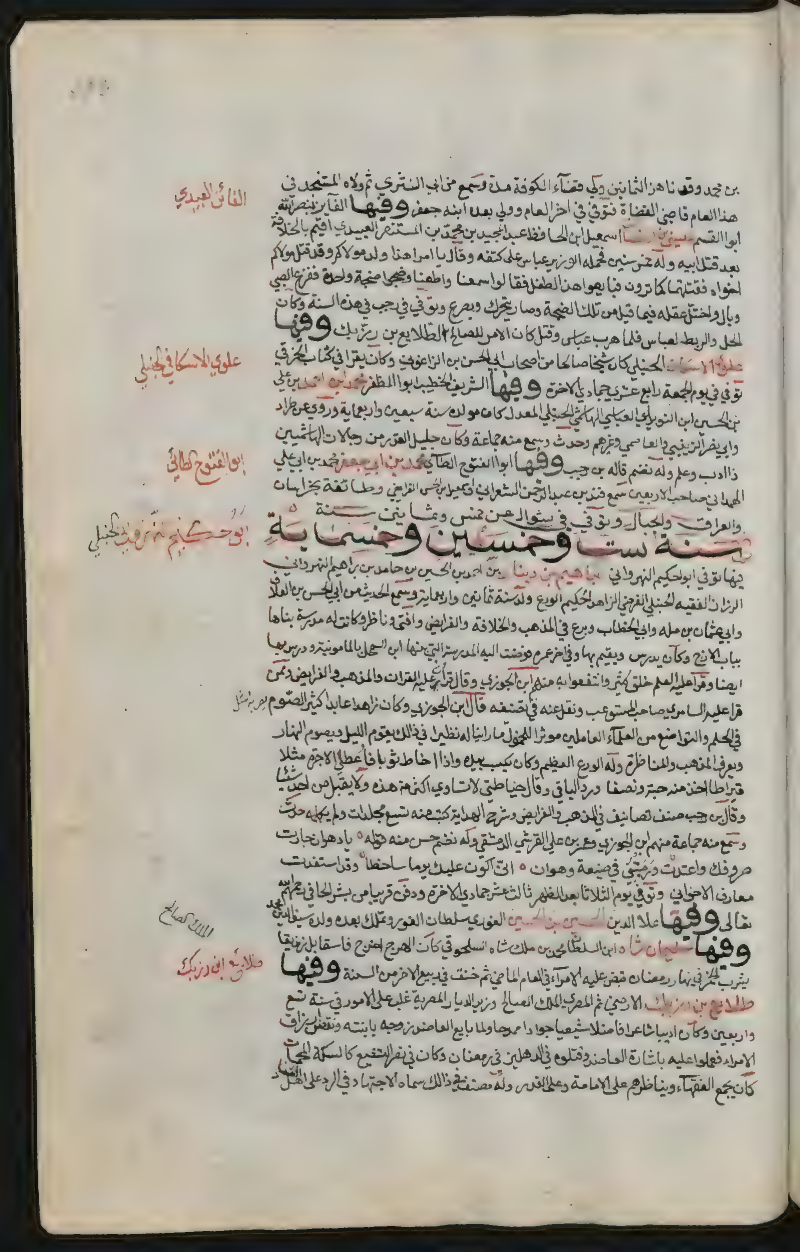 بن محمد وقد ناهز الثمانين ولي قضاء الكوفة مدة وسمع من ابي النرسي ثم ولاه المستنجد في
هذا العام قاضي القضاة فتوفي في اخر العام وولي بعده ابنه جعفر وفيها الفايز بنصر الله
الفائز العبيدي
ابو القسم عيسى بن اسمعيل ابن الحافظ عبد المجيد بن محمد بن المستنصر العبيدي اقيم بالخلافة
بعد قتل ابيه وله خمس سنين فحمله الوزير عباس على كتفه وقال يا امرا هذا ولد مولاكم وقد قتل مولاكم
اخواه فقتلتهما كما ترون فبايعوا هذا الطفل فقالوا سمعنا واطعنا وضجوا ضجة واحدة ففزع الصبي
وبال واختل عقله فيما قيل من تلك الضجة وصار يتحرك ويصرع وتوفي في رجب في هذه السنة وكان
الحل والربط لعباس فلما هرب عباس وقتل كان الامر للصالح طلايع بن رزيك وفيها
علوي الاسكافي الحنبلي
علوي الاسكاف الحنبلي كان شيخا صالحا من اصحاب ابي الحسن بن الزاغوني وكان يقرا في كتاب الخرقي
توفي في يوم الجمعة رابع عشري جمادي الاخرة وفيها الشريف الخطيب ابو المظفر محمد بن احمد بن علي
بن الحسين ابن التريكي العباسي الهاشمي الحنبلي المعدل كان مولده سنة سبعين واربعماية وروي عن طراد
وابي نصر الزينبي والعاصمي وغيرهم وحدث وسمع منه جماعة وكان جليل القدر من رجالات الهاشميين
ذا ادب وعلم وله نظم قاله بن رجب وفيها ابو الفتوح الطائي محمد بن ابي جعفر محمد بن ابي علي
ابو الفتوح الطائي
الهمداني صاحب الاربعين سمع فيد بن عبد الرحمن الشعراني واسمعيل بن الحسن الفرايضي وطائفة بخراسان
والعراق والجبال وتوفي في شوال عن خمس وثمانين سنة
سنة ست وخمسين وخمسماية
ابو حكيم النهرواني الحنبلي
فيها توفي ابو حكيم النهرواني ابراهيم بن دينار بن احمد بن الحسين بن حامد بن ابراهيم النهرواني
الرزاز الفقيه الحنبلي الفرضي الزاهد الحكيم الورع ولد سنة ثمانين واربعماية وسمع الحديث من ابي الحسن بن العلاف
وابي عثمان بن مله وابي الخطاب وبرع في المذهب والخلافة والفرايض وافتى وناظر وكانت له مدرسة بناها
بباب الازج وكان يدرس ويقيم بها وفي اخر عمره فوضت اليه المدرسة التي بناها ابن الشمحل بالمامونية ودرس بها
ايضا وقرا عليه العلم خلق كثير وانتفعوا به منهم ابن الجوزي وقال قرات عليه القران والمذهب والفرايض وممن
قرا عليه السامري صاحب المستوعب ونقل عنه في تصنيفه قال ابن الجوزي وكان زاهدا عابدا كثير الصوم يضرب به المثل
في الحلم والتواضع من العلماء العاملين موثرا للخمول ما راينا له نظيرا في ذلك يقوم الليل ويصوم النهار
ويعرف المذهب والمناظرة وله الورع العظيم وكان يكتب بيده واذا خاط ثوبا فاعطي الاجرة مثلا
قيراطا اخذ منه حبة ونصفا ورد الباقي وقال خياطتي لا تساوي اكثر من هذه ولا يقبل من احد شيا
وقال بن رجب صنف تصانيف في المذهب والفرايض وشرح الهداية كتب منه تسع مجلدات ولم يكمله حدث
وسمع منه جماعة منهم ابن الجوزي وعمر بن علي القرشي الدمشقي وله نظم حسن منه قوله يا دهر ان جارت
صروفك واعتدت ورميتني في ضيعة وهوان اني اكون عليك يوما ساخطا وقد استفدت
معارف الاخوان وتوفي يوم الثلاثا بعد الظهر ثالث عشر جمادي الاخرة ودفن قريبا من بشر الحافي رحمه الله
تعالى وفيها علا الدين الحسين بن الحسين الغوري سلطان الغور وتملك بعده ولده سيف الدين محمد
الملك الصالح
وفيها سليمان شاه ابن السلطان محمد بن ملك شاه السلجوقي كان اهوج اخرج فاسقا بل زنديقا
طلائع ابن رزيك
يشرب الخمر في نهار رمضان قبض عليه الامراء في العام الماضي ثم خنق في ربيع الاخر من السنة وفيها
طلايع بن رزيك الارمني ثم المصري الملك الصالح وزير الديار المصرية غلب على الامور في سنة تسع
واربعين وكان اديبا شاعرا فاضلا شيعيا جوادا ممدحا ولما بايع العاضد زوجه بابنته ونقص ارزاق
الامراء فعملوا عليه باشارة العاضد وقتلوه في الدهليز في رمضان وكان في نصر التشيع كالسكة المحماة
كان يجمع الفقهاء ويناظرهم على الامامة وعلى القدر وله مصنف في ذلك سماه الاجتهاد في الرد على اهل العناد